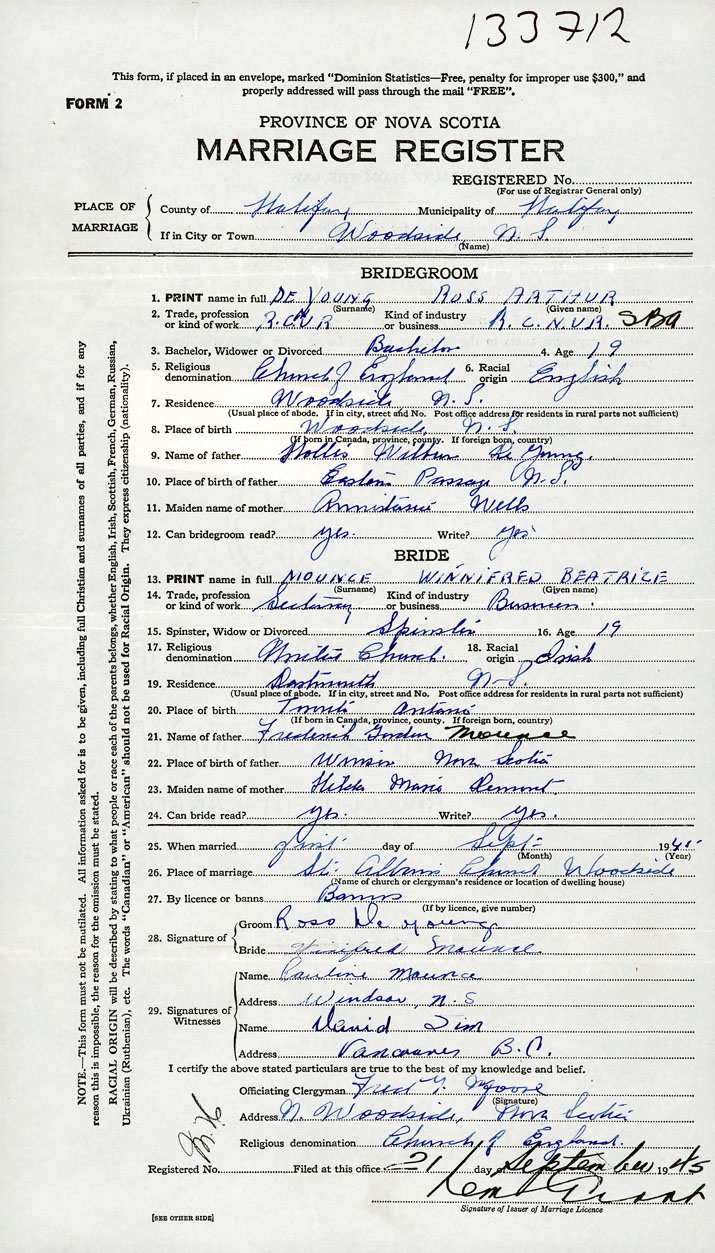 133712
This form, if placed in an envelope, marked "Dominion Statistics—Free, penalty for improper use $300," and
properly addressed will pass through the mail "FREE".
FORM 2
PROVINCE OF NOVA SCOTIA
MARRIAGE REGISTER
REGISTERED No.
(For use of Registrar General only)
PLACE OF MARRIAGE
County of Halifax Municipality of Halifax
If in City or Town Woodside, N. S.
(Name)
BRIDEGROOM
1. PRINT name in full DE YOUNG ROSS ARTHUR
(Surname) (Given name)
2. Trade, profession or kind of work R.C.N.V.R Kind of industry or business R.C.N.V.R. SBA
3. Bachelor, Widower or Divorced Bachelor 4. Age 19
5. Religious denomination Church of England 6. Racial origin English
7. Residence Woodside, N. S.
(Usual place of abode. If in city, street and No. Post office address for residents in rural parts not sufficient)
8. Place of birth Woodside, N. S.
(If born in Canada, province, county. If foreign born, country)
9. Name of father Hollis Wilbur De Young.
10. Place of birth of father Eastern Passage N.S.
11. Maiden name of mother Wells
12. Can bridegroom read? yes. Write? yes
BRIDE
13. PRINT name in full MOUNCE WINNIFRED BEATRICE
(Surname) (Given name)
14. Trade, profession or kind of work Kind of industry or business Business.
15. Spinster, Widow or Divorced Spinster 16. Age 19
17. Religious denomination United Church. 18. Racial origin Irish
19. Residence Dartmouth N-S.
(Usual place of abode. If in city, street and No. Post office address for residents in rural parts not sufficient)
20. Place of birth Toronto Ontario
(If born in Canada, province, county. If foreign born, country)
21. Name of father Frederick Gordon Mounce
22. Place of birth of father Windsor Nova Scotia
23. Maiden name of mother Hilda Marie
24. Can bride read? yes. Write? yes.
25. When married first day of Sept- 1945
(Month) (Year)
26. Place of marriage St. Albans Church Woodside
(Name of church or clergyman's residence or location of dwelling house)
27. By licence or banns Banns
(If by licence, give number)
28. Signature of
Groom Ross De Young
Bride Winifred Mounce.
29. Signatures of Witnesses
Name Pauline Mounce
Address Windsor, N. S
Name David Sim
Address Vancouver B.C.
I certify the above stated particulars are true to the best of my knowledge and belief.
Officiating Clergyman Fred Y. Moore
(Signature)
Address N. Woodside, Nova Scotia
Religious denomination Church of England.
Registered No. Filed at this office 21 day of September 1945
Grant
Signature of Issuer of Marriage Licence
[SEE OTHER SIDE]
NOTE.—This form must not be mutilated. All information asked for is to be given, including full Christian and surnames of all parties, and if for any
reason this is impossible, the reason for the omission must be stated.
RACIAL ORIGIN will be described by stating to what people or race each of the parents belongs, whether English, Irish, Scottish, French, German, Russian,
Ukrainian (Ruthenian), etc. The words "Canadian" or "American" should not be used for Racial Origin. They express citizenship (nationality).